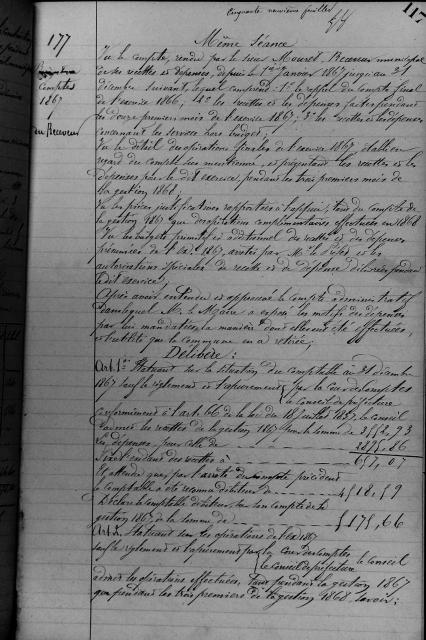 Cinquante neuvième feuillet
117
177
Même Séance
Comptes
1867
du Receveur
Vu le compte, rendu par le sieur Mouret, Receveur municipal
de ses recettes et dépenses, depuis le 1er janvier 1867 jusqu'au 31
décembre suivant, lequel comprend: 1° le rappel du compte final
de l'exercice 1866, 2° les recettes et les dépenses faites pendant
les douze premiers mois de l'exercice 1867; 3° les recettes et les dépenses
concernant les services hors budget;
Vu le détail des opérations finales de l'exercice 1867, établi en
regard du compte sus mentionné, et présentant les recettes et les
dépenses pour le dit exercice, pendant les trois premiers mois de
la gestion 1868;
Vu les pièces justificatives rapportées à l'appui, tant du compte de
la gestion 1867 que des opérations complémentaires effectuées en 1868
Vu les budgets primitif et additionnel des recettes et des dépenses
présumées de l'ex. 1867, arrêtés par Mr le Préfet et les
autorisations spéciales de recette et de dépense délivrées pendant
le dit exercice;
Après avoir entendu et approuvé le compte administratif
dans lequel Mr le Maire a exposé les motifs des dépenses
par lui mandatées, la manière dont elles ont été effectuées,
et l'utilité que la commune en a retirée;
Délibère:
Art. 1er Statuant sur la situation du comptable au 31 décembre
1867 sauf le règlement et l'apurement par la Cour des comptes
le Conseil de préfecture
conformément à l'art. 66 de la loi du 18 Juillet 1837, le Conseil
admet les recettes de la gestion 1867 pour la somme de 3552,93
Les dépenses pour celle de 2895,86
657,07
Et attendu que par l'arrêté du compte précédent
le comptable a été reconnu débiteur de 4518,59
Déclare le comptable débiteur, sur son compte de la
gestion 1867, de la somme de 5175,66
Art. 2. Statuant sur les opérations de l'ex 1867
sauf le règlement et l'apurement par la Cour des comptes
le conseil de préfecture le Conseil
admet les opérations effectuées, tant pendant la gestion 1867
que pendant les trois premiers de la gestion 1868 savoir: